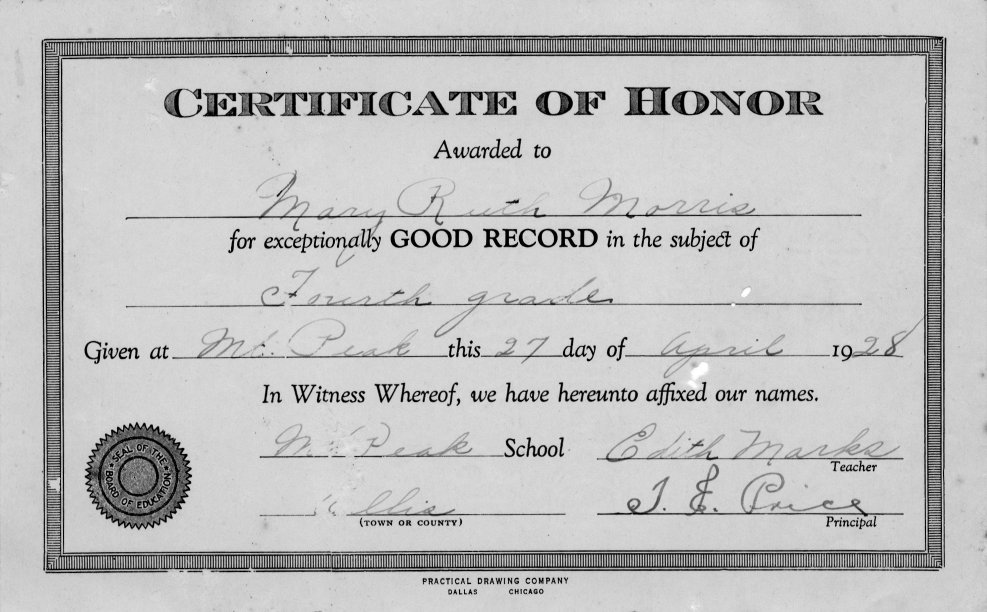 CERTIFICATE OF HONOR
Awarded to
Mary Ruth Morris
for exceptionally GOOD RECORD in the subject of
Fourth grade
Given at Mt. Peak this 27 day of April 1928
In Witness Whereof, we have hereunto affixed our names.
Mt Peak School Edith Marks
Teacher
Ellis J. E. Price
(TOWN OR COUNTY) Principal
SEAL OF THE BOARD OF EDUCATION
PRACTICAL DRAWING COMPANY
DALLAS CHICAGO